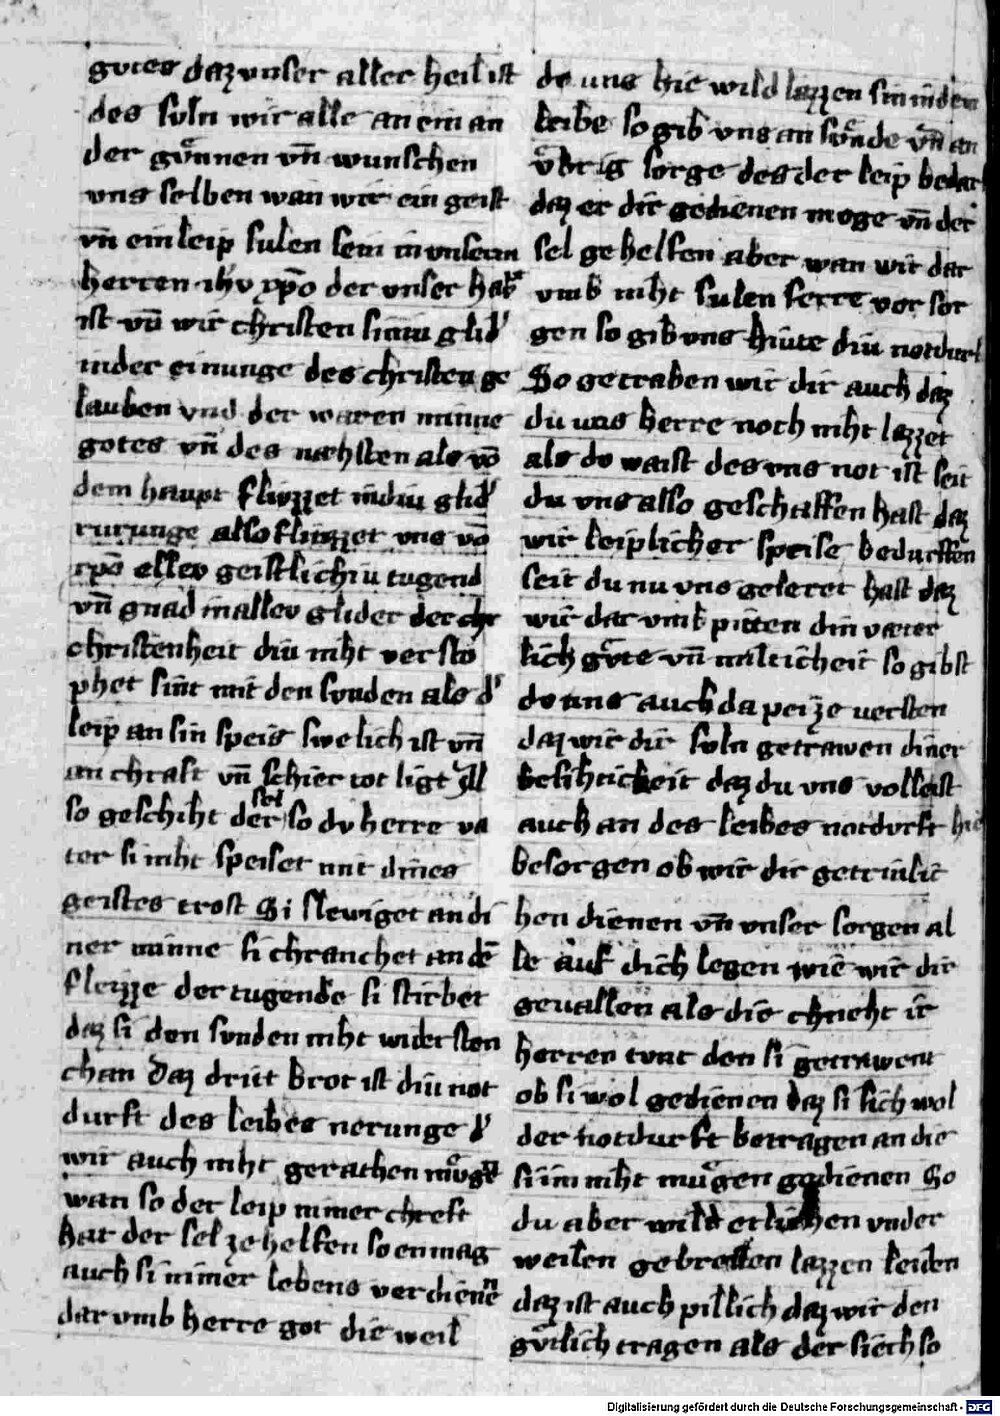 gutes daz unser aller heil ist
des suln wir alle an ein an
der gůnnen vn̄ wunschen
vns selben wan wir ein geist
vn̄ ein leip sulen sein in unserm
herren ihv xp̄o der vnser haƀ
ist vn̄ wir christen sint glid'
in der einunge des christen ge
lauben vnd der waren minne
gotes vn̄ des næhsten als vō
dem haupt fliuzzet in diu glid'
rurunge also fliuzzet uns vō
xpō allev geistlichiu tugend
vn̄ gnad in allev glider der chr
christenheit diu niht versto
phet sint mit den sunden als d'
leip an sin speis swelich ist vn̄
an chraft vn̄ schier tot ligt Al
so geschiht der sel so dv herre va
ter si niht speiset mit dines
geistes trost Si slewiget an di
ner minne si chranchet an dē
fleizze der tugende si stirbet
daz si den sunden niht widersten
chan Daz drítt brot ist diu not
durft des leibes nerunge d'
wir auch niht gerathen můgē
wan so der leip nimer chreft
hat der sel ze helfen so enmag
auch si nimer lebens verdienēn
dar vmb herre got die weil
do uns hie wild lazzen sin in dem
leibe so gib vns an sůnde vn̄ an
ůbrig sorge des der leip bedarf
daz er dir gedienen moge vn̄ der
sel gehelfen aber wan wir dar
vmb niht sulen ferre vor sor
gen so gib vns hiute diu notdurf
So getraben wir dir auch daz
du uns herre noch niht lazzet
als do waist des vns not ist seit
du vns also geschaffen hast daz
wir leiplicher speise bedurften
seit du nu vns geleret hast daz
wir dar vmb pitten din væter
lich gůte vn̄ milticheit so gibst
do uns auch da pei ze versten
daz wir dir suln getrawen diner
besihticheit daz du vns vollaist
auch an des leibes notdurft hie
besorgen ob wir dir getriulic
hen dienen vn̄ vnser sorgen al
le auf dich legen wie wir dir
gevallen als die chneht ir
herren tunt den si getrawent
ob si wol gedienen daz si sich wol
der notdurft betragen an die
si im niht mugen gedienen So
du aber wild etlichen vnder
weilen gebresten lazzen leiden
daz ist auch pillich daz wir den
gůtlich tragen als der siech so
Digitalisierung gefördert durch die Deutsche Forschungsgemeinschaft - DFG